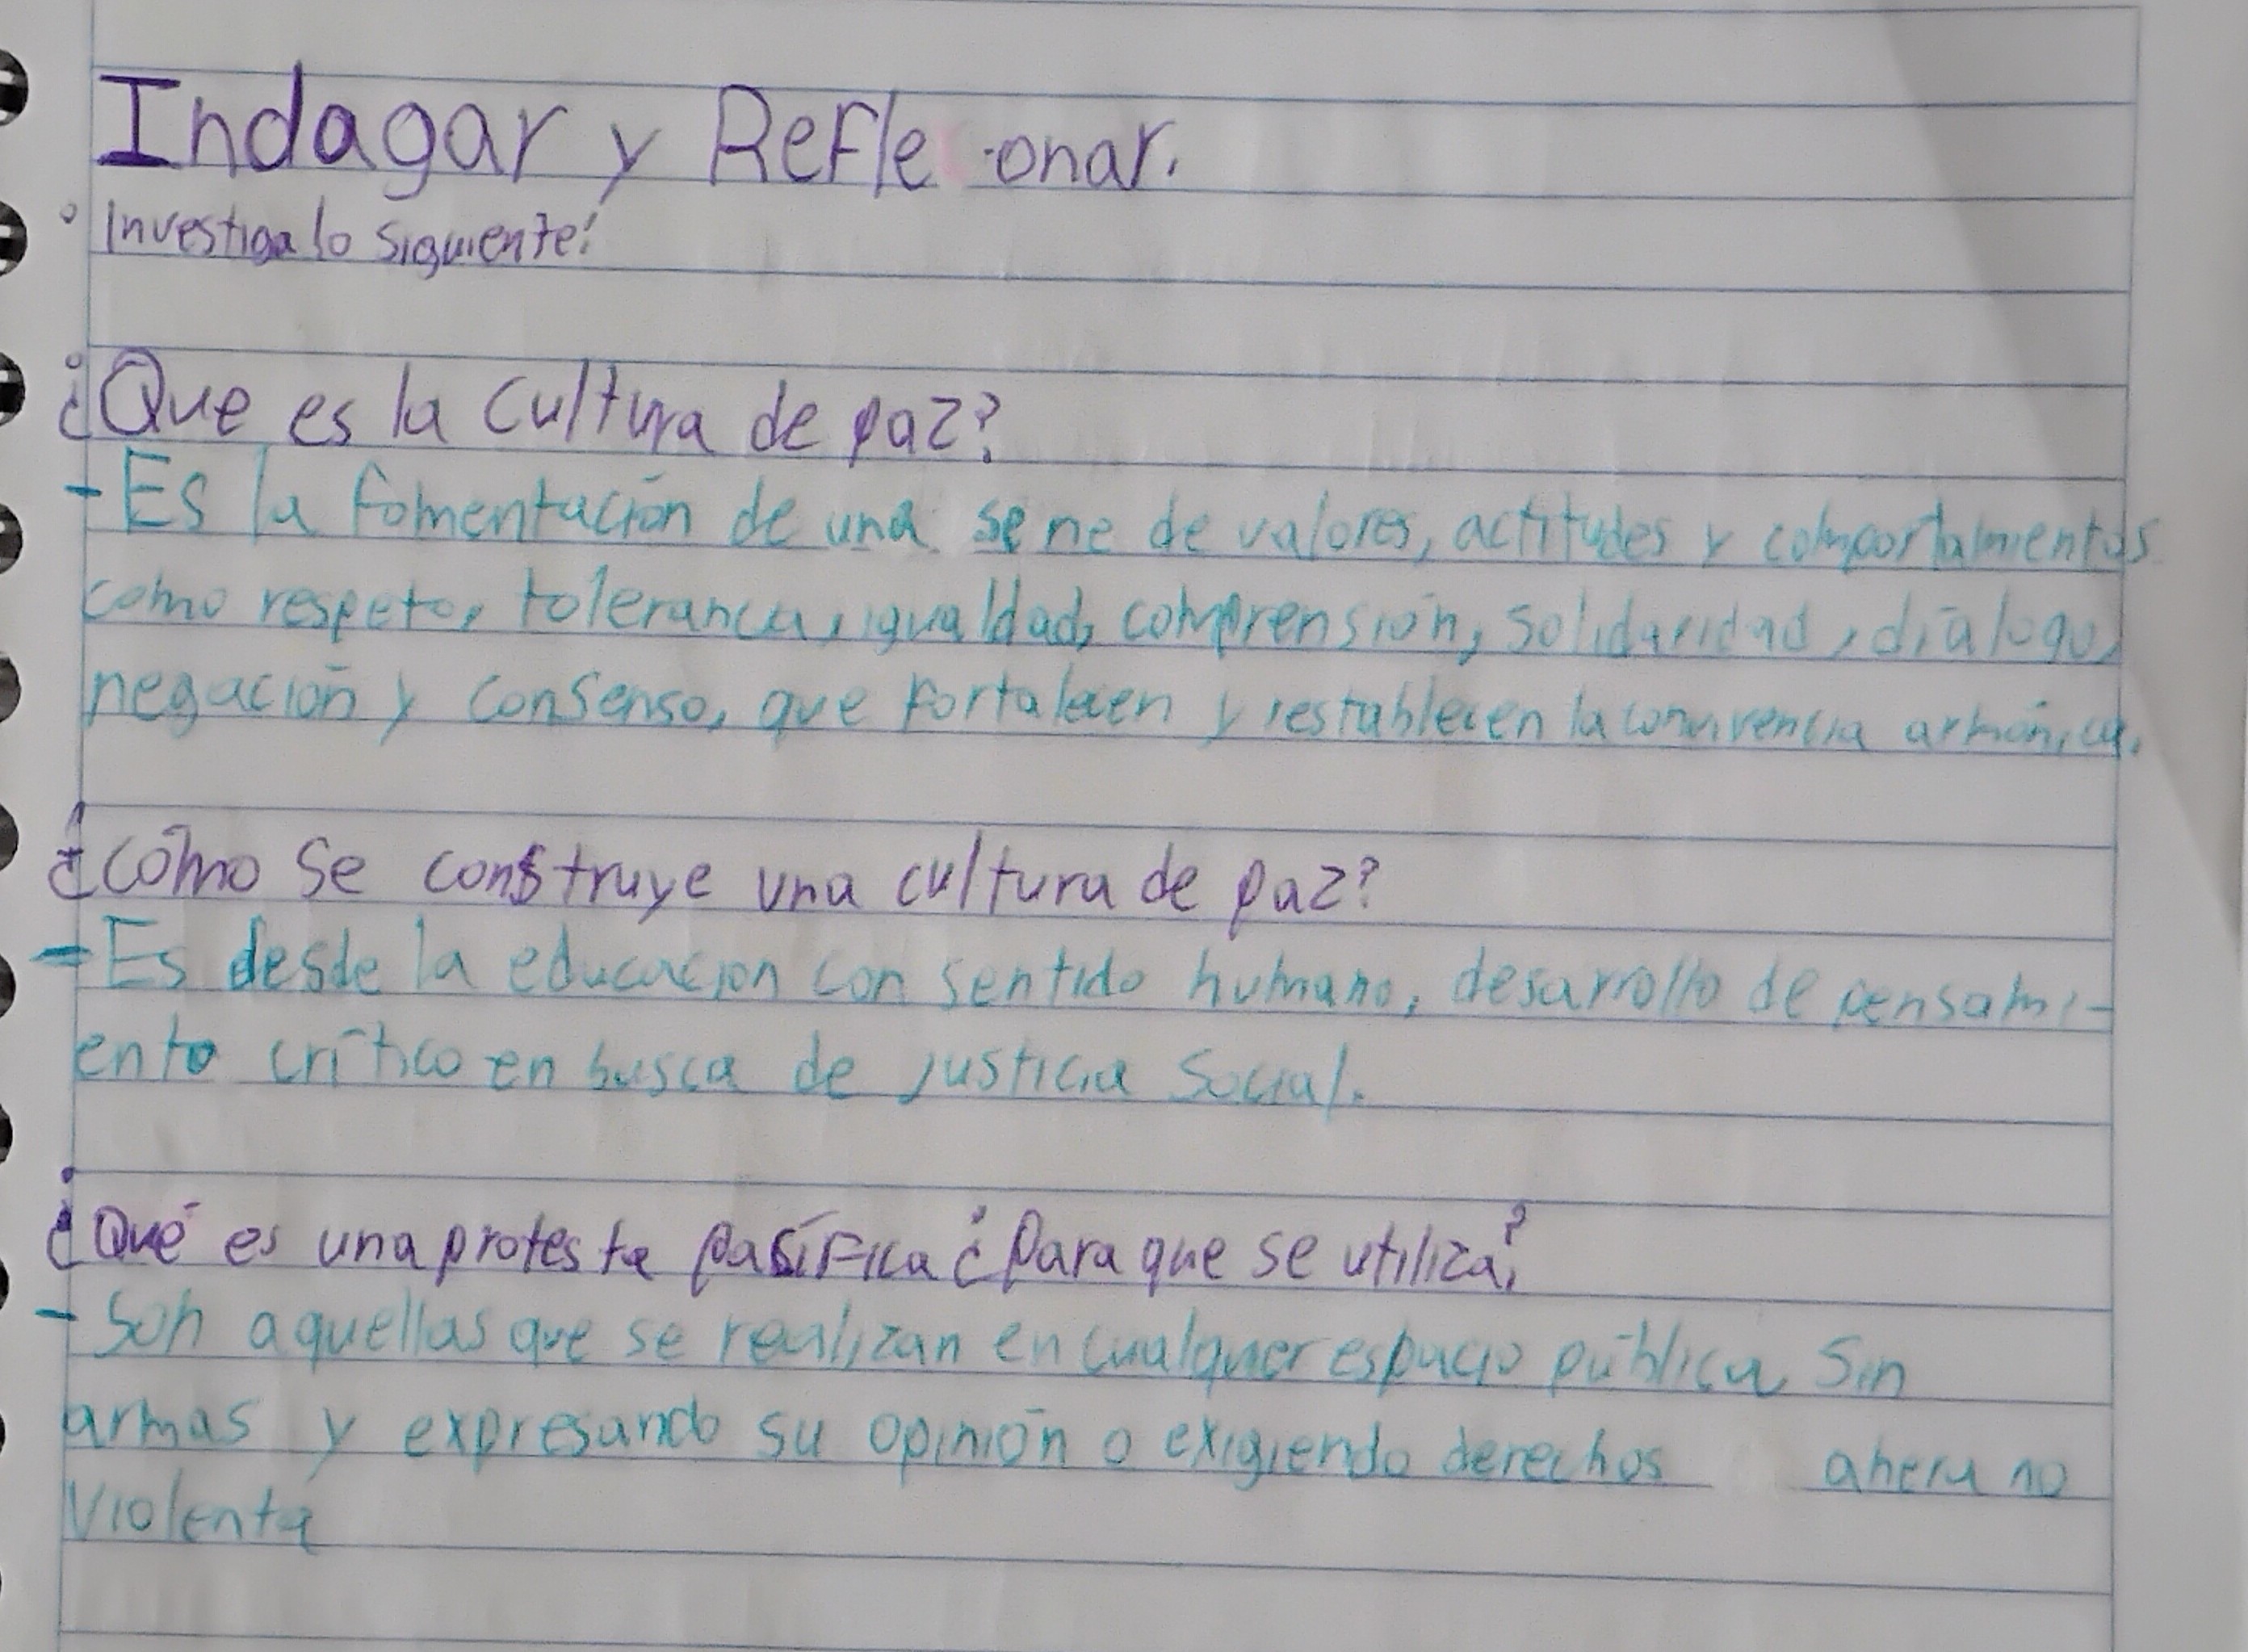 Indagar y Refle ionar.
° Investiga lo siguiente:
¿Que es la cultura de paz?
- Es la fomentación de una serie de valores, actitudes y comportamientos
como respeto, tolerancia, igualdad, comprensión, solidaridad, diálogo,
negación y consenso, que fortalecen y restablecen la convivencia armónica.
¿cómo se construye una cultura de paz?
- Es desde la educacion con sentido humano, desarrollo de pensami-
ento crítico en busca de justicia social.
¿Qué es una protesta pasífica ¿Para que se utiliza?
- Son aquellas que se realizan en cualquier espacio pública sin
armas y expresando su opinión o exigiendo derechos no
violenta